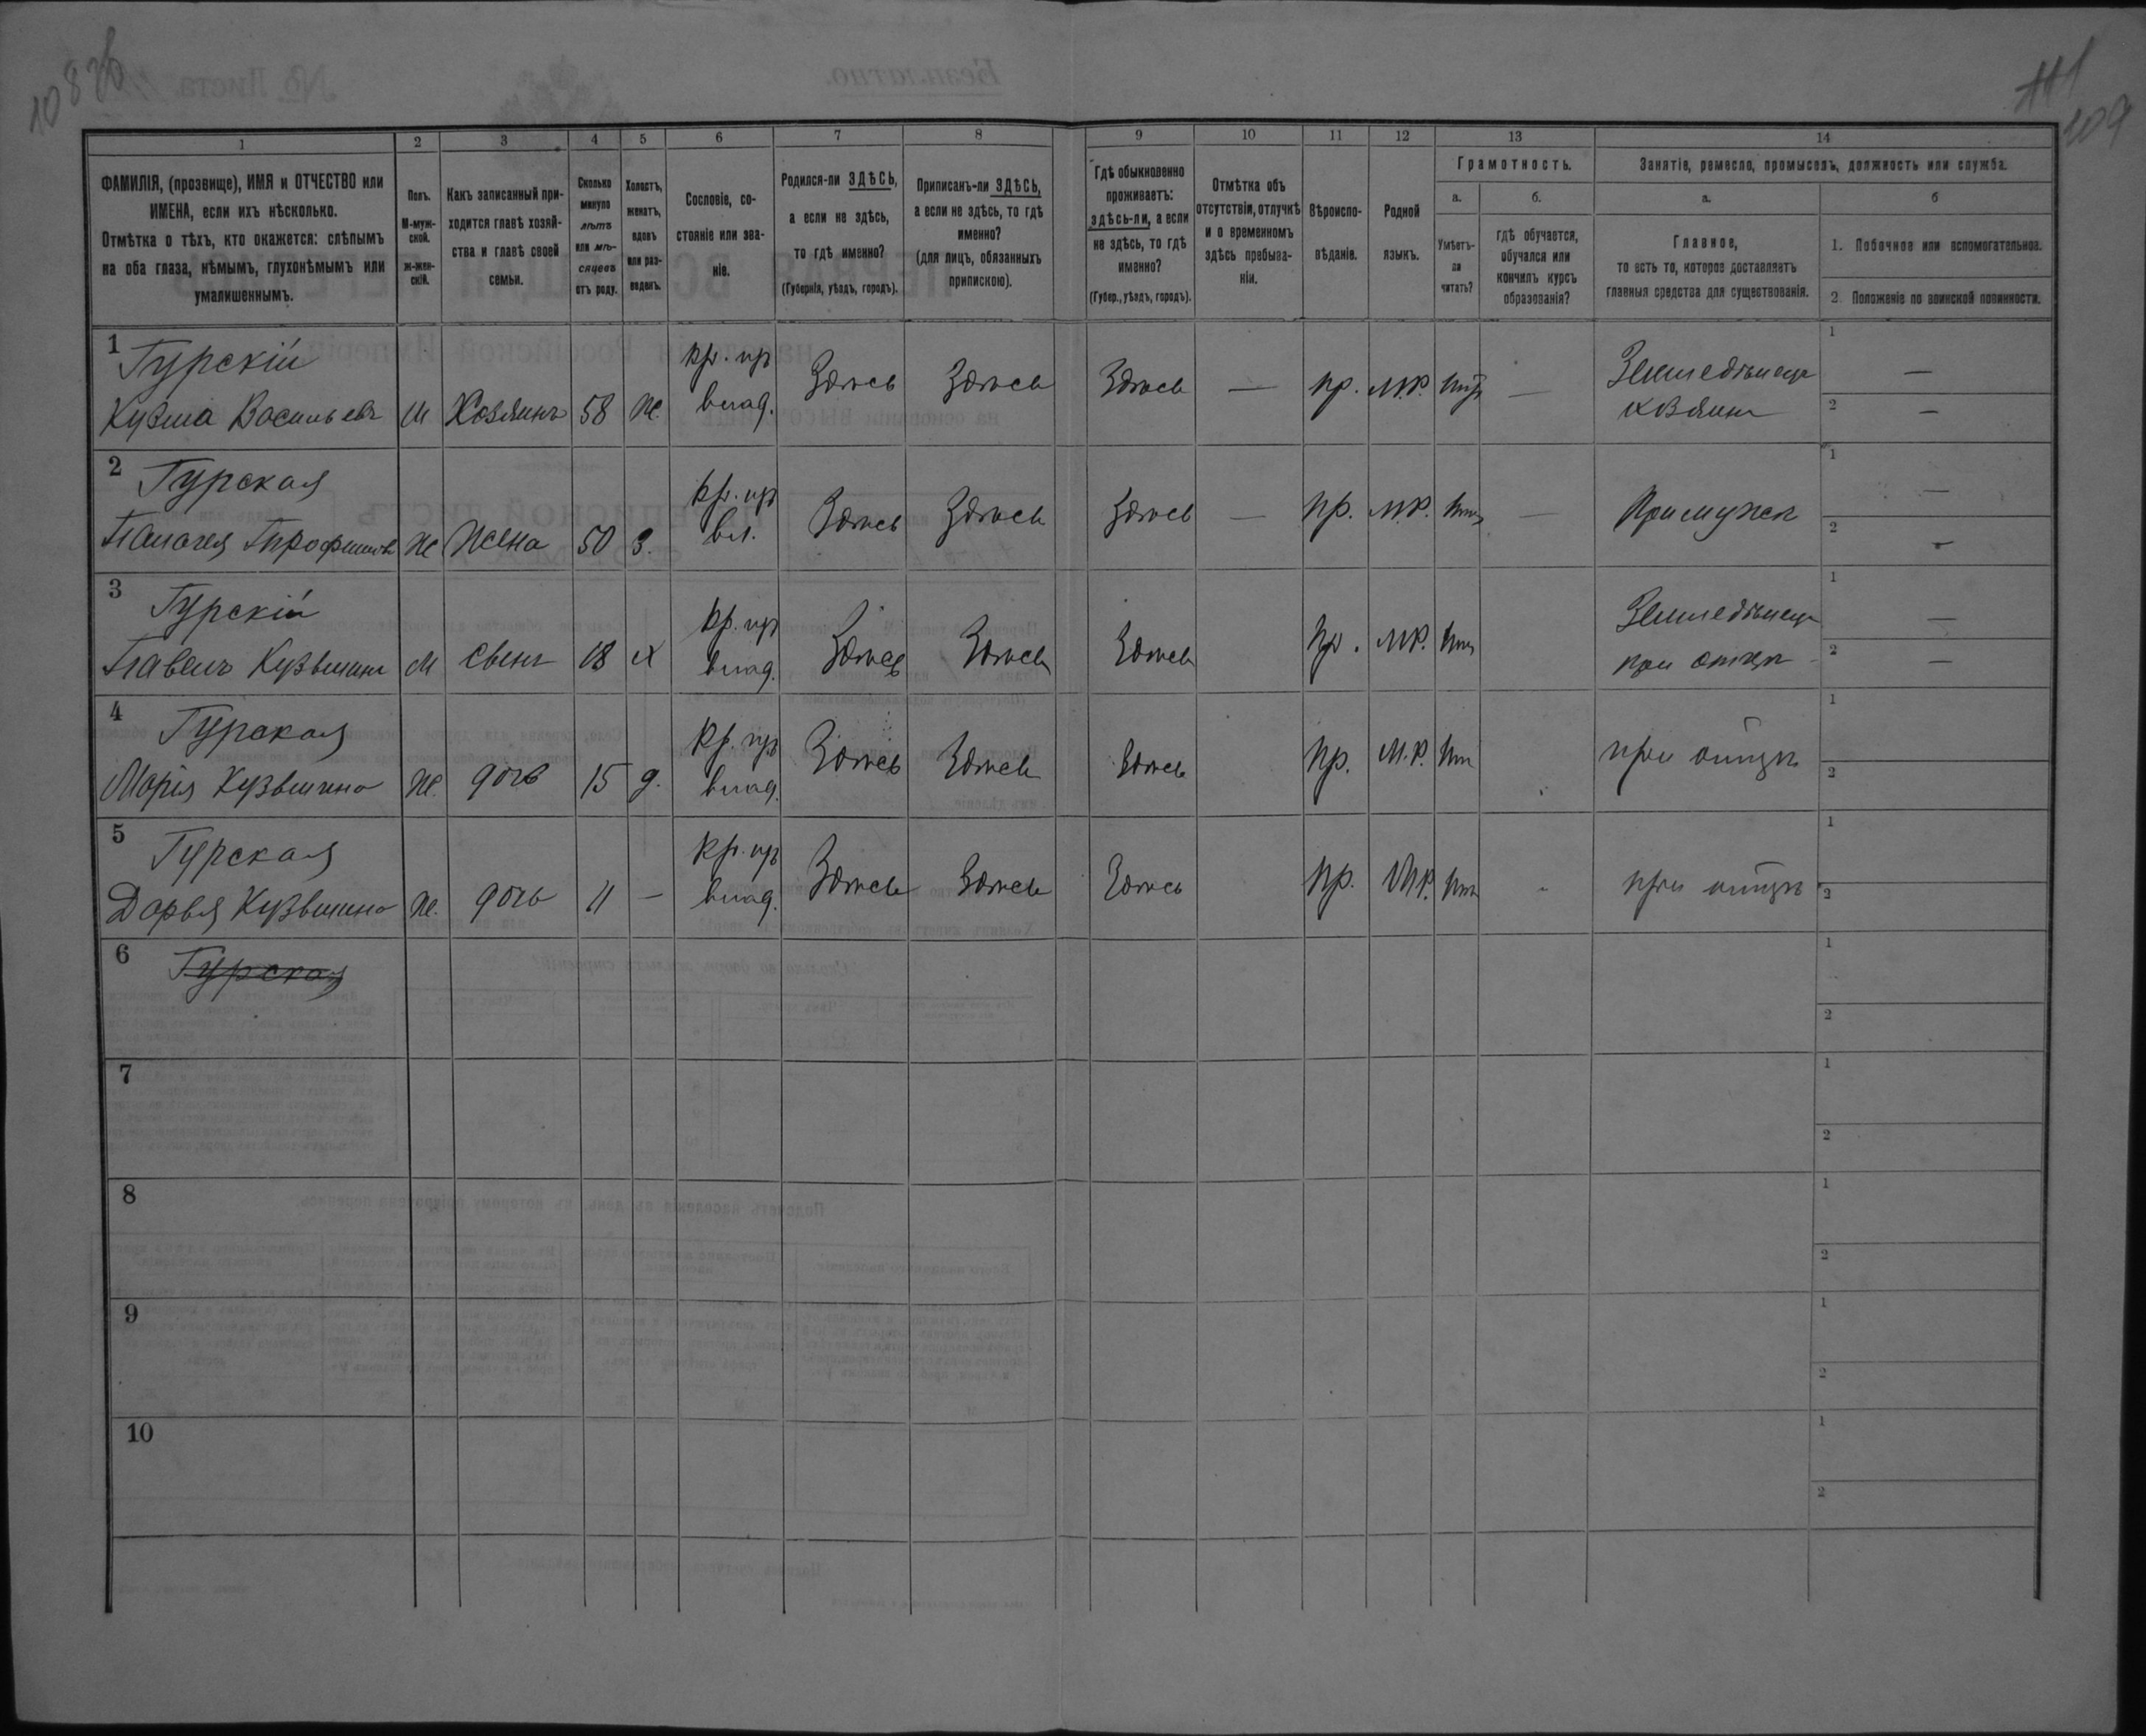 108 об
111
109
1
2
3
4
5
6
7
8
9
10
11
12
13
14
ФАМИЛІЯ, (прозвище), ИМЯ и ОТЧЕСТВО или
ИМЕНА, если ихъ нѣсколько.
Отмѣтка о тѣхъ, кто окажется: слѣпымъ
на оба глаза, нѣмымъ, глухонѣмымъ или
умалишеннымъ.
Полъ.
М-муж-
ской.
ж-жен-
скій.
Какъ записанный при-
ходится главѣ хозяй-
ства и главѣ своей
семьи.
Сколько
минуло
лѣтъ
или мѣ-
сяцевъ
отъ роду.
Холостъ,
женатъ,
вдовъ
или раз-
веденъ.
Сословіе, со-
стояніе или зва-
ніе.
Родился-ли ЗДѢСЬ,
а если не здѣсь,
то гдѣ именно?
(Губернія, уѣздъ, городъ).
Приписанъ-ли ЗДѢСЬ,
а если не здѣсь, то гдѣ
именно?
(для лицъ, обязанныхъ
припискою).
Гдѣ обыкновенно
проживаетъ:
здѣсь-ли, а если
не здѣсь, то гдѣ
именно?
(Губер., уѣздъ, городъ).
Отмѣтка объ
отсутствіи, отлучкѣ
и о временномъ
здѣсь пребыва-
ніи.
Вѣроиспо-
вѣданіе.
Родной
языкъ.
Грамотность.
а.
Умѣетъ-
ли
читать?
б.
гдѣ обучается,
обучался или
кончилъ курсъ
образованія?
Занятіе, ремесло, промыселъ, должность или служба.
а.
Главное,
то есть то, которое доставляетъ
главныя средства для существованія.
б
1. Побочное или вспомогательное.
2. Положеніе по воинской повинности.
1
Гурскій
Кузьма Васильевъ
М
Хозяинъ
58
ж.
кр. из
влад.
Здѣсь
Здѣсь
Здѣсь
—
пр.
М.Р.
нѣт
—
Земледѣлец
хозяин
1 —
2 —
2
Гурская
Палагея Трофимов
ж
жена
50
з.
кр. из
вл.
Здѣсь
Здѣсь
Здѣсь
—
пр.
М.Р.
нѣт
—
При мужѣ
1 —
2 —
3
Гурскій
Павелъ Кузьминъ
М
сынъ
18
х
кр. из
влад.
Здѣсь
Здѣсь
Здѣсь
пр.
М.Р.
нѣт
Земледѣлец
при отцѣ
1 —
2 —
4
Гурская
Марія Кузьмина
ж.
дочь
15
д.
кр. из
влад.
Здѣсь
Здѣсь
Здѣсь
пр.
М.Р.
нѣт
при отцѣ
1
2
5
Гурская
Дарья Кузьмина
ж.
дочь
11
—
кр. из
влад.
Здѣсь
Здѣсь
Здѣсь
пр.
М.Р.
нѣт
-
при отцѣ
1
2
6
Гурская
1
2
7
1
2
8
1
2
9
1
2
10
1
2